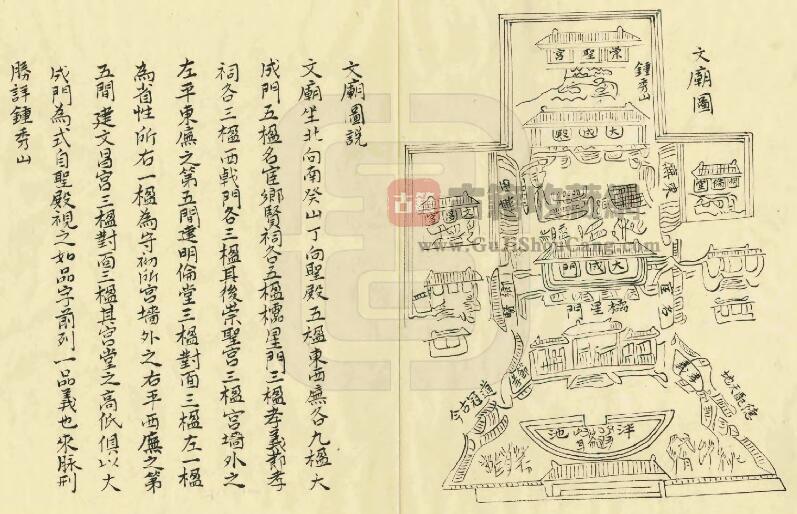 文廟圖
鍾秀山
崇聖宮
大成殿
明倫堂
大成門
櫺星門
泮池
德配天地
道冠古今
古籍收藏網
www.GuJiShouCang.com
文廟圖説
文廟坐北向南癸山丁向聖殿五楹東西廡各九楹大
成門五楹名宦鄉賢祠各五楹櫺星門三楹孝義節孝
祠各三楹西戟門各三楹其後崇聖宮三楹宮墻外之
左平東廡之第五間建明倫堂三楹對面三楹左一楹
為省性所右一楹為守初所宮墻外之右平西廡之第
五間建文昌宮三楹對面三楹其宮堂之高低俱以大
成門為式自聖殿視之如品字前列一品義也來脉形
勝詳鍾秀山